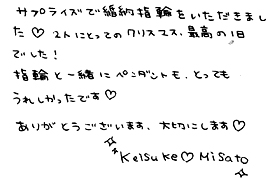 サプライズで婚約指輪をいただきまし
た♡ 2人にとってのクリスマス、最高の1日
でした!
指輪と一緒にペンダントも、とっても
うれしかったです♡
ありがとうございます、大切にします♡
Keisuke♡Misato